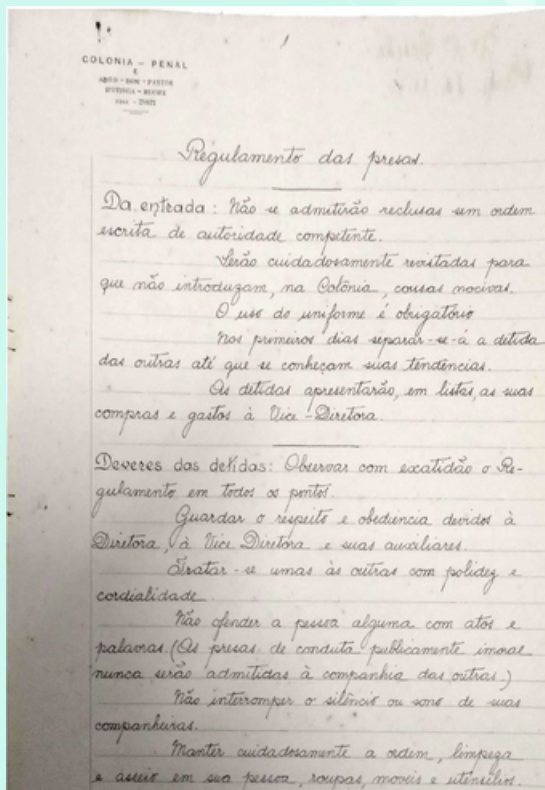 1
COLONIA - PENAL
E
BOM - PASTOR
Regulamento das presas.
Da entrada: Não se admitirão reclusas sem ordem
escrita de autoridade competente.
Serão cuidadosamente revistadas para
que não introduzam, na Colônia, cousas nocivas.
O uso do uniforme é obrigatório
Nos primeiros dias separar-se-á a detida
das outras até que se conheçam suas tendências.
As detidas apresentarão, em listas, as suas
compras e gastos à Vice-Diretora.
Deveres das detidas: Observar com exatidão o Re-
gulamento em todos os pontos.
Guardar o respeito e obediencia devidos à
Diretora, à Vice Diretora e suas auxiliares.
Tratar-se umas às outras com polidez e
cordialidade.
Não ofender a pessoa alguma com atos e
palavras. (As presas de conduta publicamente imoral
nunca serão admitidas à companhia das outras.)
Não interromper o silêncio ou sono de suas
companheiras.
Manter cuidadosamente a ordem, limpeza
e asseio em sua pessoa, roupas, moveis e utensílios.